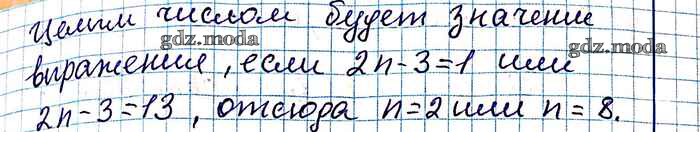 Целым числом будет значение
gdz.moda
gdz.moda
выражения, если 2n-3=1 или
2n-3=13, отсюда n=2 или n=8.